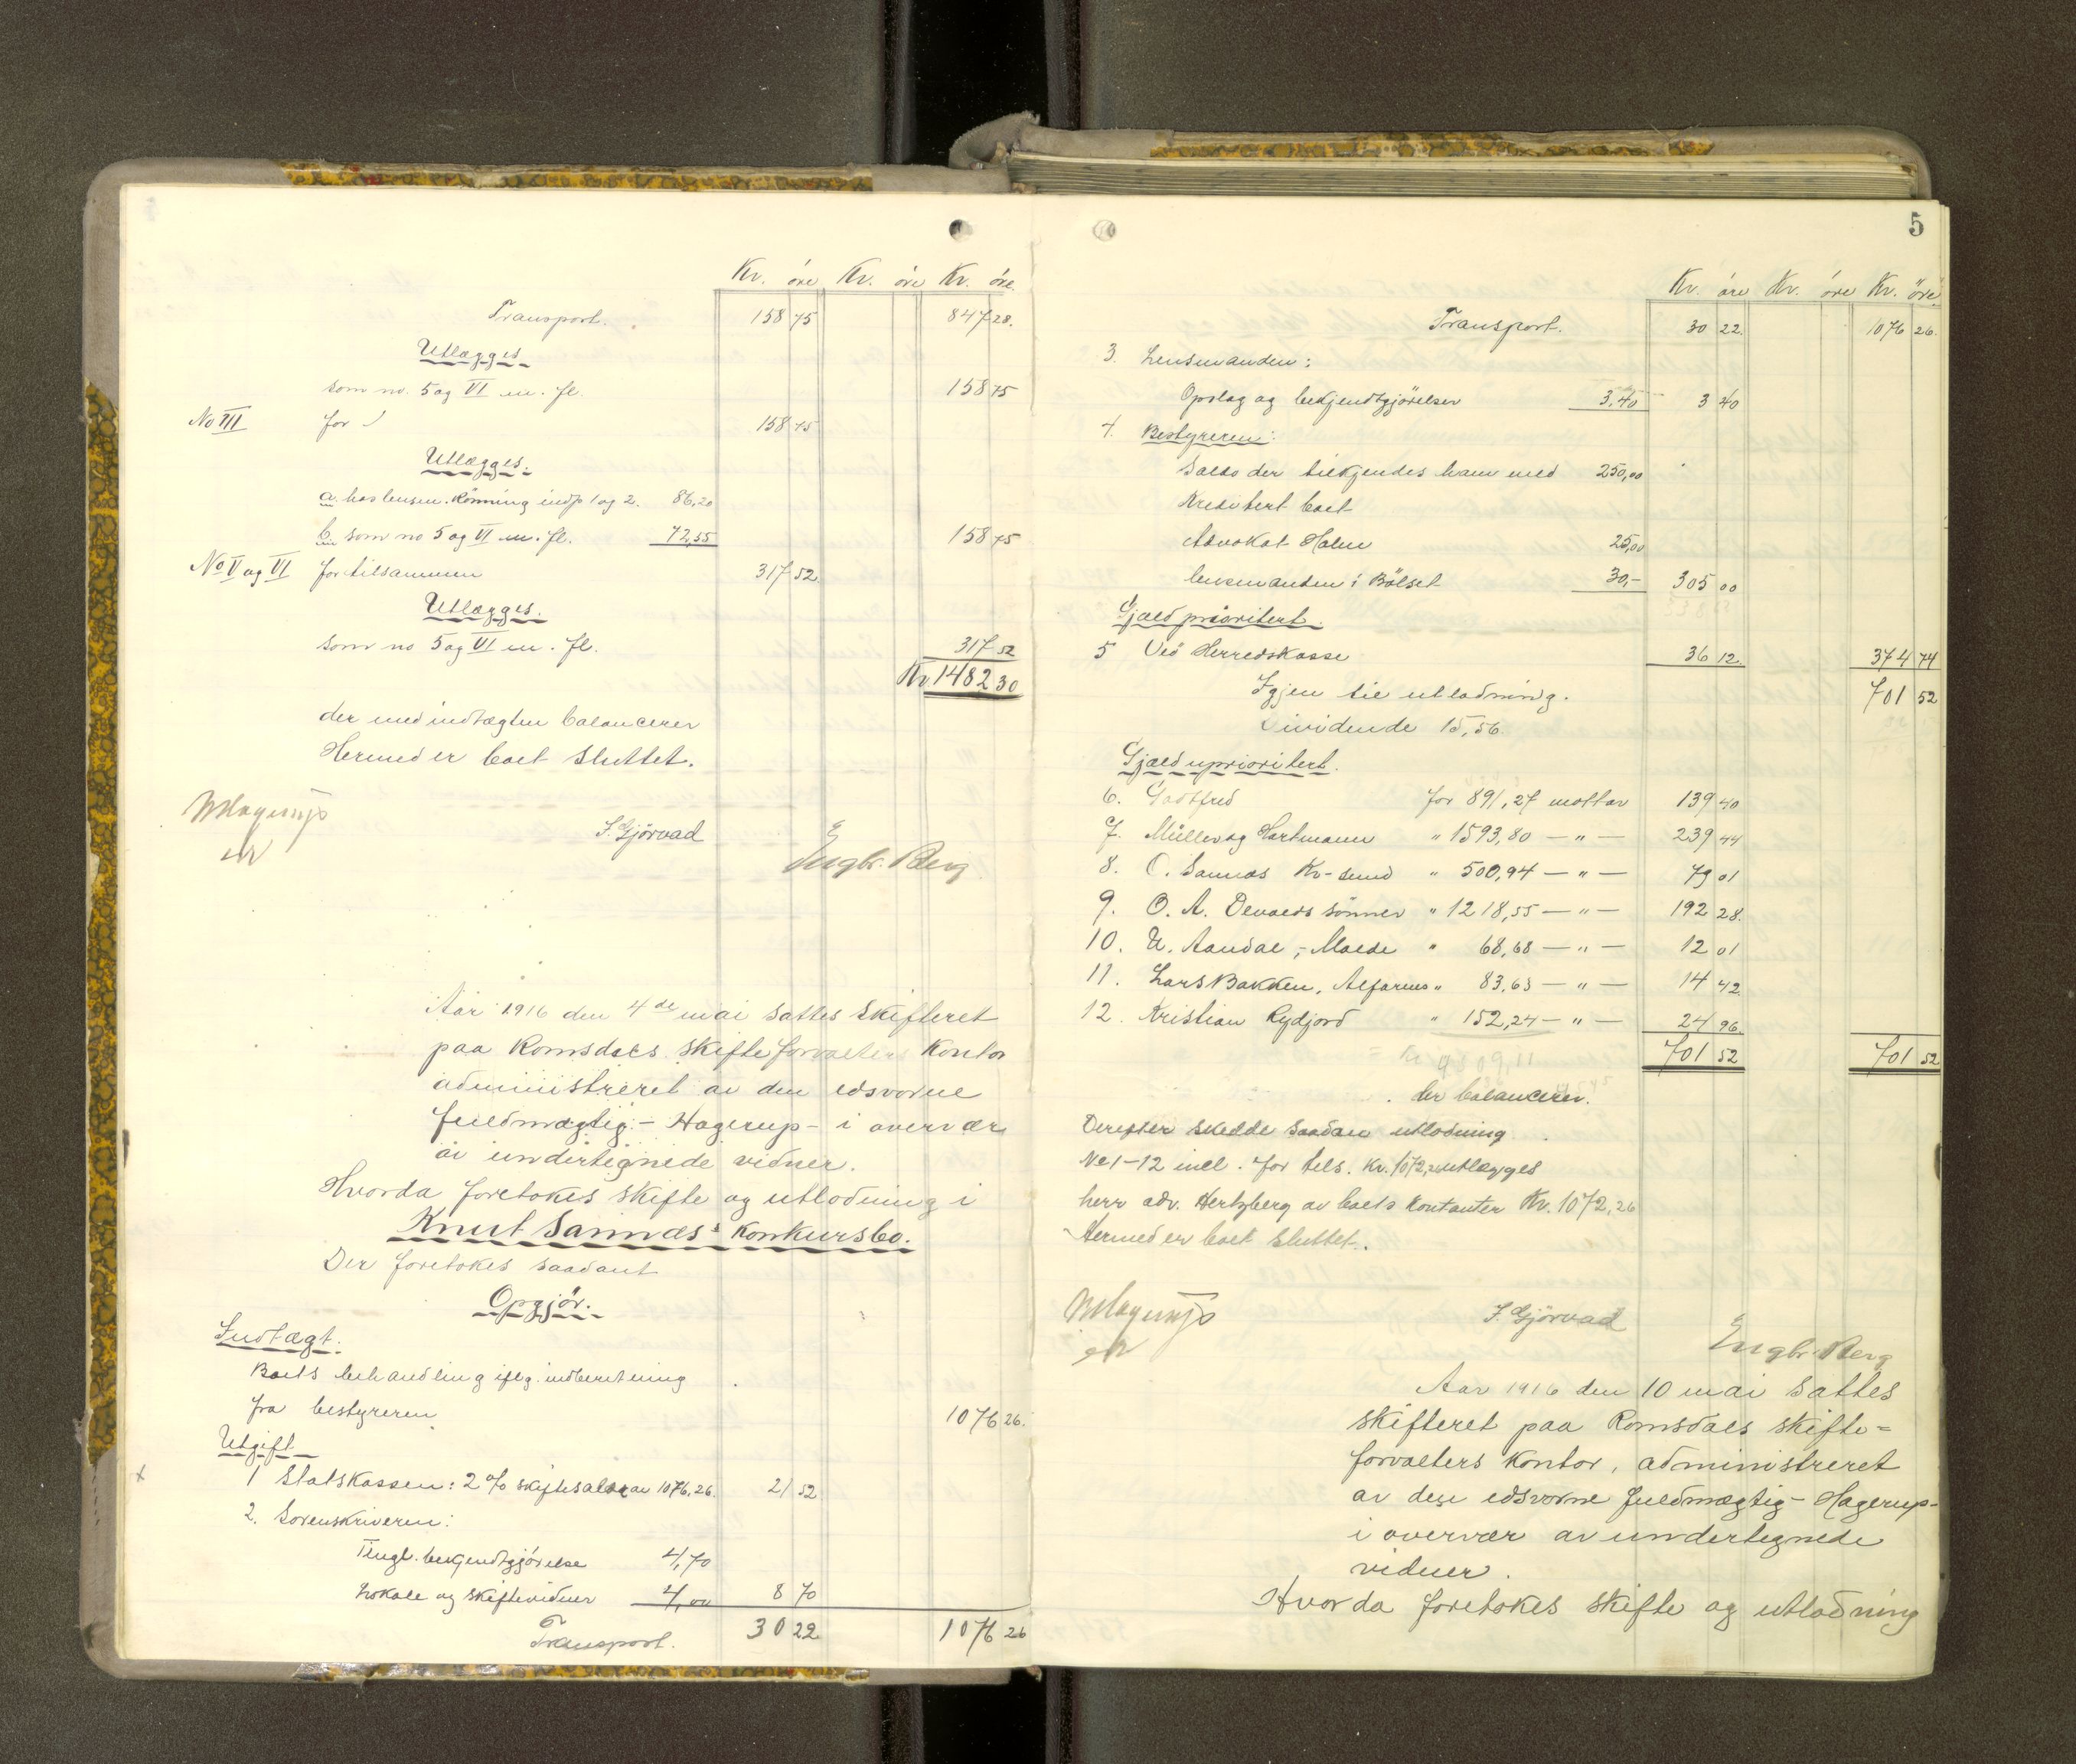 Kr. öre Kr. öre Kr. öre
Transport. 158 75 847 28.
Utlægges
som no. 5 og VI m. fl. 158 75
No III for 158 75
Utlægges.
a. hos lensm. Rönning indp 1 og 2. 86,20
b som no 5 og VI m. fl. 72,55 158 75
No V og VI for tilsammen 317 52
Utlægges.
som no 5 og VI m. fl. 317 52
Kr 1482 30
der med indtægten balancerer
Hermed er boet sluttet.
Hagerup
S. Gjörvad
Engbr. Berg
Aar 1916 den 4de mai sattes skifteret
paa Romsdals skifteforvalters kontor
administreret av den edsvorne
fuldmægtig - Hagerup - i overvær
av undertegnede vidner.
Hvorda foretokes skifte og utlodning i
Knut Sannæs' konkursbo.
Der foretokes saadant
Opgjör.
Indtægt.
Boets behandling iflg. indberetning
fra bestyreren 1076 26.
Utgift
1 Statskassen: 2 % skiftesal av 1076,26. 21 52
2. Sorenskriveren:
Tingl. bekjendtgjörelse 4,70
Lokale og skiftevidner 4,00 8 70
Transport. 30 22 1076 26
5
Kr. öre Kr. öre Kr. öre
Transport. 30 22. 1076 26.
3. Lensmanden:
Opslag og bekjendtgjörelser 3,40 3 40
4. Bestyreren:
Saldo der tilkjendes ham med 250,00
Kreditert boet
Advokat Holm 25,00
lensmanden i Bölset 30,- 305 00
Gjæld prioritert.
5 Veö Herredskasse 36 12. 374 74
Igjen til utlodning. 701 52
Dividende 15,56
Gjæld uprioritert.
6. Godtfred for 891,27 mottar 139 40
7. Müller og Hartmann " 1593,80 — " — 239 44
8. O. Sannæs Kr-sund " 500,94 — " — 79 01
9. O. A. Devolds sönner " 1218,55 — " — 192 28.
10. U. Aandal, Molde " 68,68 — " — 12 01
11. Lars Bakken, Alfarnes " 83,63 — " — 14 42
12. Kristian Rydjord " 152,24 — " — 24 96.
701 52 701 52
der balancerer.
Derefter skedde saadan utlodning
No 1-12 incl. for tils. kr. 1072,26 utlægges
herr adv. Hertzberg av boets kontanter Kr. 1072,26
Hermed er boet sluttet.
Hagerup
S. Gjörvad
Engbr. Berg
Aar 1916 den 10 mai sattes
skifteret paa Romsdals skifte=
forvalters kontor, administreret
av den edsvorne fuldmægtig - Hagerup -
i overvær av undertegnede
vidner.
Hvorda foretokes skifte og utlodning